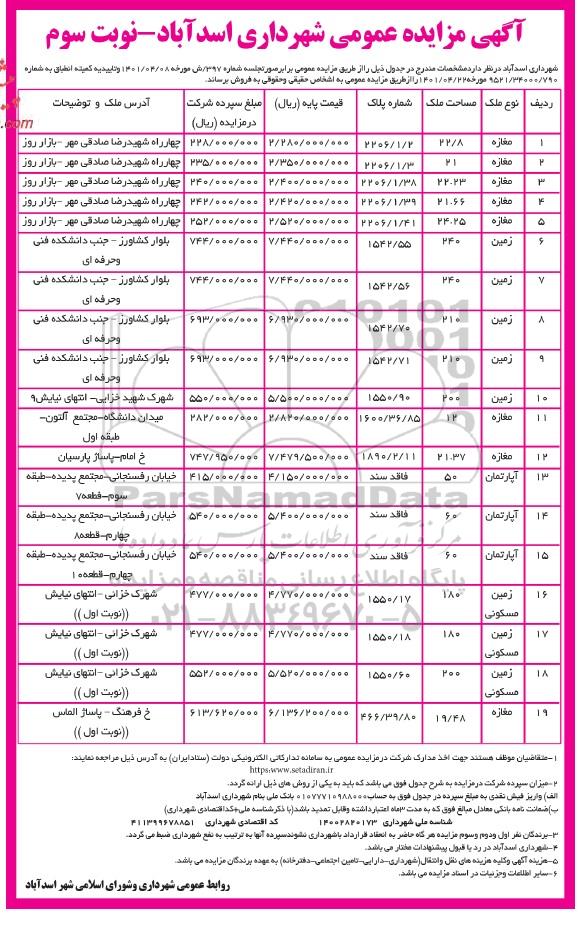 آگهی مزایده عمومی شهرداری اسدآباد-نوبت سوم
شهرداری اسدآباد درنظر داردمشخصات مندرج در جدول ذیل را از طریق مزایده عمومی برابرصورتجلسه شماره ۳۹۷/ش مورخه ۱۴۰۱/۰۴/۰۸وتاییدیه کمیته انطباق به شماره
۹۵۲۱/۳۴۰۰۰/۷۹۰ مورخه۱۴۰۱/۰۴/۲۲راازطریق مزایده عمومی به اشخاص حقیقی وحقوقی به فروش برساند.
ردیف نوع ملک مساحت ملک شماره پلاک قیمت پایه (ریال) مبلغ سپرده شرکت درمزایده (ریال) آدرس ملک و توضیحات
۱ مغازه ۲۲/۸ ۲۲۰۶/۱/۲ ۲/۲۸۰/۰۰۰/۰۰۰ ۲۲۸/۰۰۰/۰۰۰ چهارراه شهیدرضا صادقی مهر -بازار روز
۲ مغازه ۲۱ ۲۲۰۶/۱/۳ ۲/۳۵۰/۰۰۰/۰۰۰ ۲۳۵/۰۰۰/۰۰۰ چهارراه شهیدرضا صادقی مهر -بازار روز
۳ مغازه ۲۲.۲۳ ۲۲۰۶/۱/۳۸ ۲/۴۰۰/۰۰۰/۰۰۰ ۲۴۰/۰۰۰/۰۰۰ چهارراه شهیدرضا صادقی مهر -بازار روز
۴ مغازه ۲۱.۶۶ ۲۲۰۶/۱/۳۹ ۲/۴۲۰/۰۰۰/۰۰۰ ۲۴۲/۰۰۰/۰۰۰ چهارراه شهیدرضا صادقی مهر -بازار روز
۵ مغازه ۲۴.۲۵ ۲۲۰۶/۱/۴۱ ۲/۵۲۰/۰۰۰/۰۰۰ ۲۵۲/۰۰۰/۰۰۰ چهارراه شهیدرضا صادقی مهر -بازار روز
۶ زمین ۲۴۰ ۱۵۴۲/۵۵ ۷/۴۴۰/۰۰۰/۰۰۰ ۷۴۴/۰۰۰/۰۰۰ بلوار کشاورز - جنب دانشکده فنی
وحرفه ای
۷ زمین ۲۴۰ ۱۵۴۲/۵۶ ۷/۴۴۰/۰۰۰/۰۰۰ ۷۴۴/۰۰۰/۰۰۰ بلوار کشاورز - جنب دانشکده فنی
وحرفه ای
۸ زمین ۲۱۰ ۱۵۴۲/۷۰ ۶/۹۳۰/۰۰۰/۰۰۰ ۶۹۳/۰۰۰/۰۰۰ بلوار کشاورز - جنب دانشکده فنی
وحرفه ای
۹ زمین ۲۱۰ ۱۵۴۲/۷۱ ۶/۹۳۰/۰۰۰/۰۰۰ ۶۹۳/۰۰۰/۰۰۰ بلوار کشاورز - جنب دانشکده فنی
وحرفه ای
۱۰ زمین ۲۰۰ ۱۵۵۰/۹۰ ۵/۵۰۰/۰۰۰/۰۰۰ ۵۵۰/۰۰۰/۰۰۰ شهرک شهید خزایی- انتهای نیایش۹
۱۱ مغازه ۱۲ ۱۶۰۰/۳۶/۸۵ ۲/۸۲۰/۰۰۰/۰۰۰ ۲۸۲/۰۰۰/۰۰۰ میدان دانشگاه-مجتمع آلتون-
طبقه اول
۱۲ مغازه ۲۱.۳۷ ۱۸۹۰/۲/۱۱ ۷/۴۷۹/۵۰۰/۰۰۰ ۷۴۷/۹۵۰/۰۰۰ خ امام-پاساژ پارسیان
۱۳ آپارتمان ۵۰ فاقد سند ۴/۱۵۰/۰۰۰/۰۰۰ ۴۱۵/۰۰۰/۰۰۰ خیابان رفسنجانی-مجتمع پدیده-طبقه
سوم-قطعه۷
۱۴ آپارتمان ۶۰ فاقد سند ۵/۴۰۰/۰۰۰/۰۰۰ ۵۴۰/۰۰۰/۰۰۰ خیابان رفسنجانی-مجتمع پدیده-طبقه
چهارم-قطعه۸
۱۵ آپارتمان ۶۰ فاقد سند ۵/۴۰۰/۰۰۰/۰۰۰ ۵۴۰/۰۰۰/۰۰۰ خیابان رفسنجانی-مجتمع پدیده-طبقه
چهارم-قطعه۱۰
۱۶ زمین مسکونی ۱۸۰ ۱۵۵۰/۱۷ ۴/۷۷۰/۰۰۰/۰۰۰ ۴۷۷/۰۰۰/۰۰۰ شهرک خزائی -انتهای نیایش
((نوبت اول ))
۱۷ زمین مسکونی ۱۸۰ ۱۵۵۰/۱۸ ۴/۷۷۰/۰۰۰/۰۰۰ ۴۷۷/۰۰۰/۰۰۰ شهرک خزائی -انتهای نیایش
((نوبت اول ))
۱۸ زمین مسکونی ۲۰۰ ۱۵۵۰/۶۰ ۵/۵۲۰/۰۰۰/۰۰۰ ۵۵۲/۰۰۰/۰۰۰ شهرک خزائی -انتهای نیایش
((نوبت اول ))
۱۹ مغازه ۱۹/۴۸ ۴۶۶/۳۹/۸۰ ۶/۱۳۶/۲۰۰/۰۰۰ ۶۱۳/۶۲۰/۰۰۰ خ فرهنگ - پاساژ الماس
((نوبت اول ))
ParsNamadData
پایگاه اطلاع رسانی مناقصه و مزایده
۰۲۱-۸۸۳۴۹۶۷۰-۵
۱-متقاضیان موظف هستند جهت اخذ مدارک شرکت درمزایده عمومی به سامانه تدارکاتی الکترونیکی دولت (ستادایران) به آدرس ذیل مراجعه نمایند:
https:www.setadiran.ir
۲-میزان سپرده شرکت درمزایده به شرح جدول فوق می باشد که باید به یکی از روش های ذیل ارائه گردد.
الف) واریز فیش نقدی به مبلغ سپرده در جدول فوق به حساب۰۱۰۷۷۷۱۰۹۸۸۰۰۰ بانک ملی بنام شهرداری اسدآباد
ب)ضمانت نامه بانکی معادل مبالغ فوق که به مدت ۳ماه اعتبارداشته وقابل تمدید باشد(با ذکرشناسه ملی+کداقتصادی شهرداری)
شناسه ملی شهرداری ۱۴۰۰۲۸۲۰۱۷۳ کد اقتصادی شهرداری ۴۱۱۳۹۹۶۷۸۸۵۱
۳-برندگان نفر اول ودوم وسوم مزایده هر گاه حاضر به انعقاد قرارداد باشهرداری نشوندسپرده آنها به ترتیب به نفع شهرداری ضبط می گردد.
۴-شهرداری اسدآباد در رد یا قبول پیشنهادات مختار می باشد.
۵-هزینه آگهی وکلیه هزینه های نقل وانتقال(شهرداری-دارایی-تامین اجتماعی-دفترخانه) به عهده برندگان مزایده می باشد.
۶-سایر اطلاعات وجزئیات در اسناد مزایده می باشد.
روابط عمومی شهرداری وشورای اسلامی شهر اسدآباد